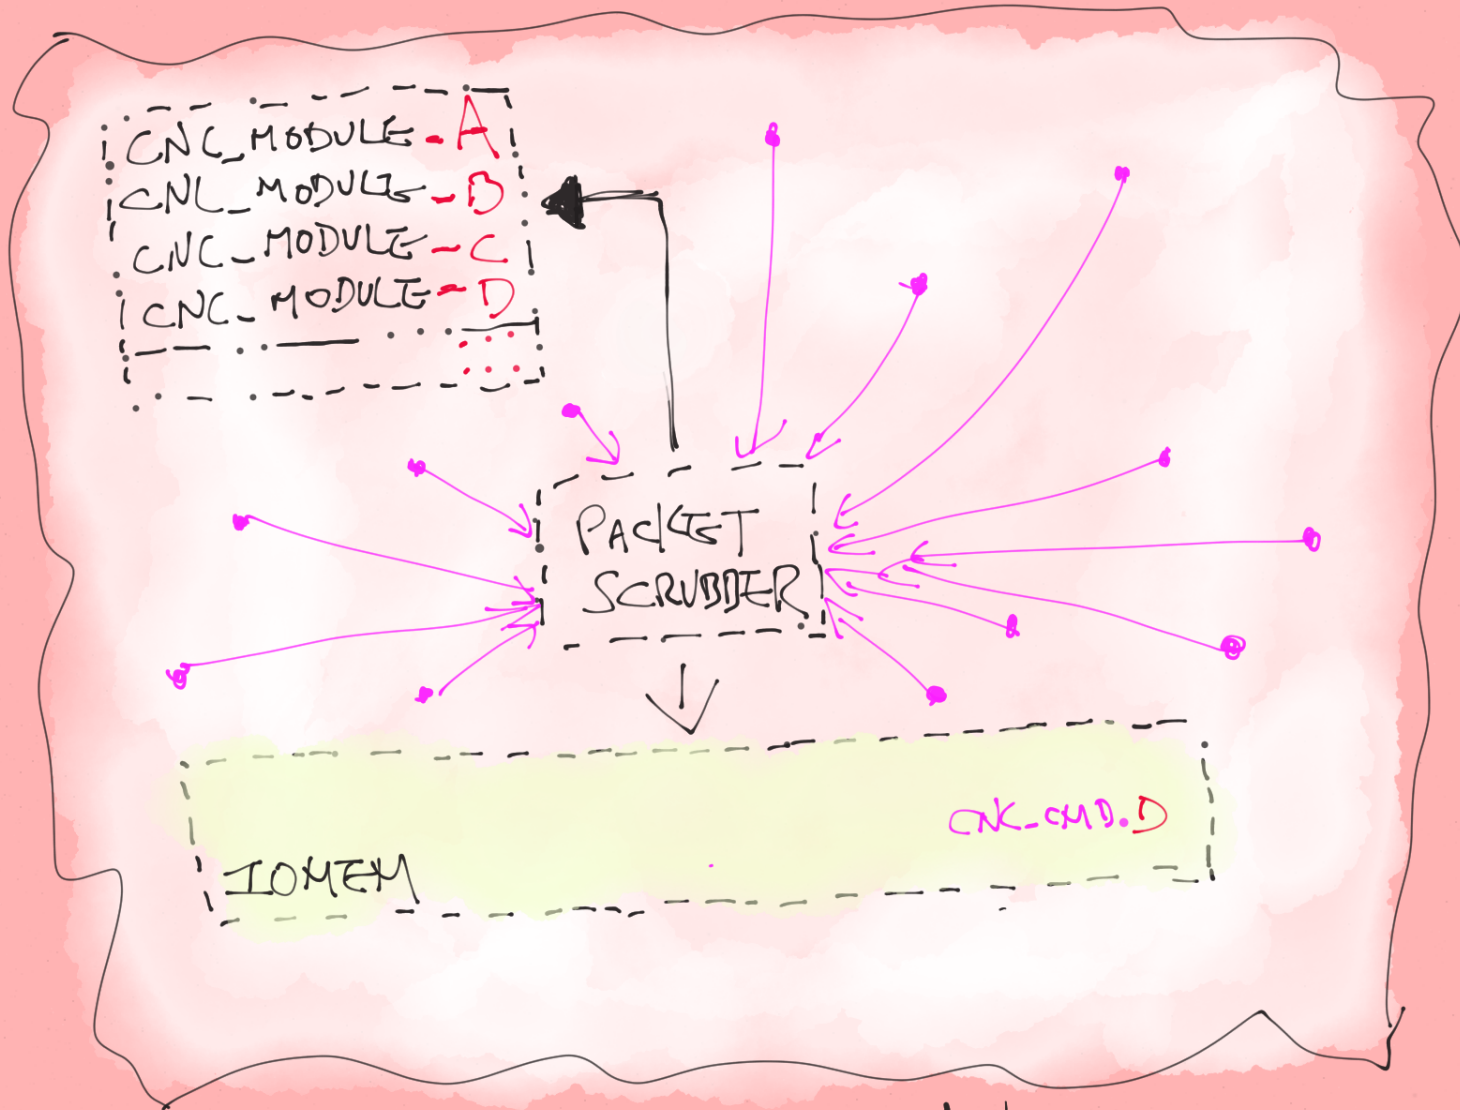 CNC_MODULE-A
CNC_MODULE-B
CNC_MODULE-C
CNC_MODULE-D
PACKET
SCRUBBER
CNC_CMD.D
IOMEM